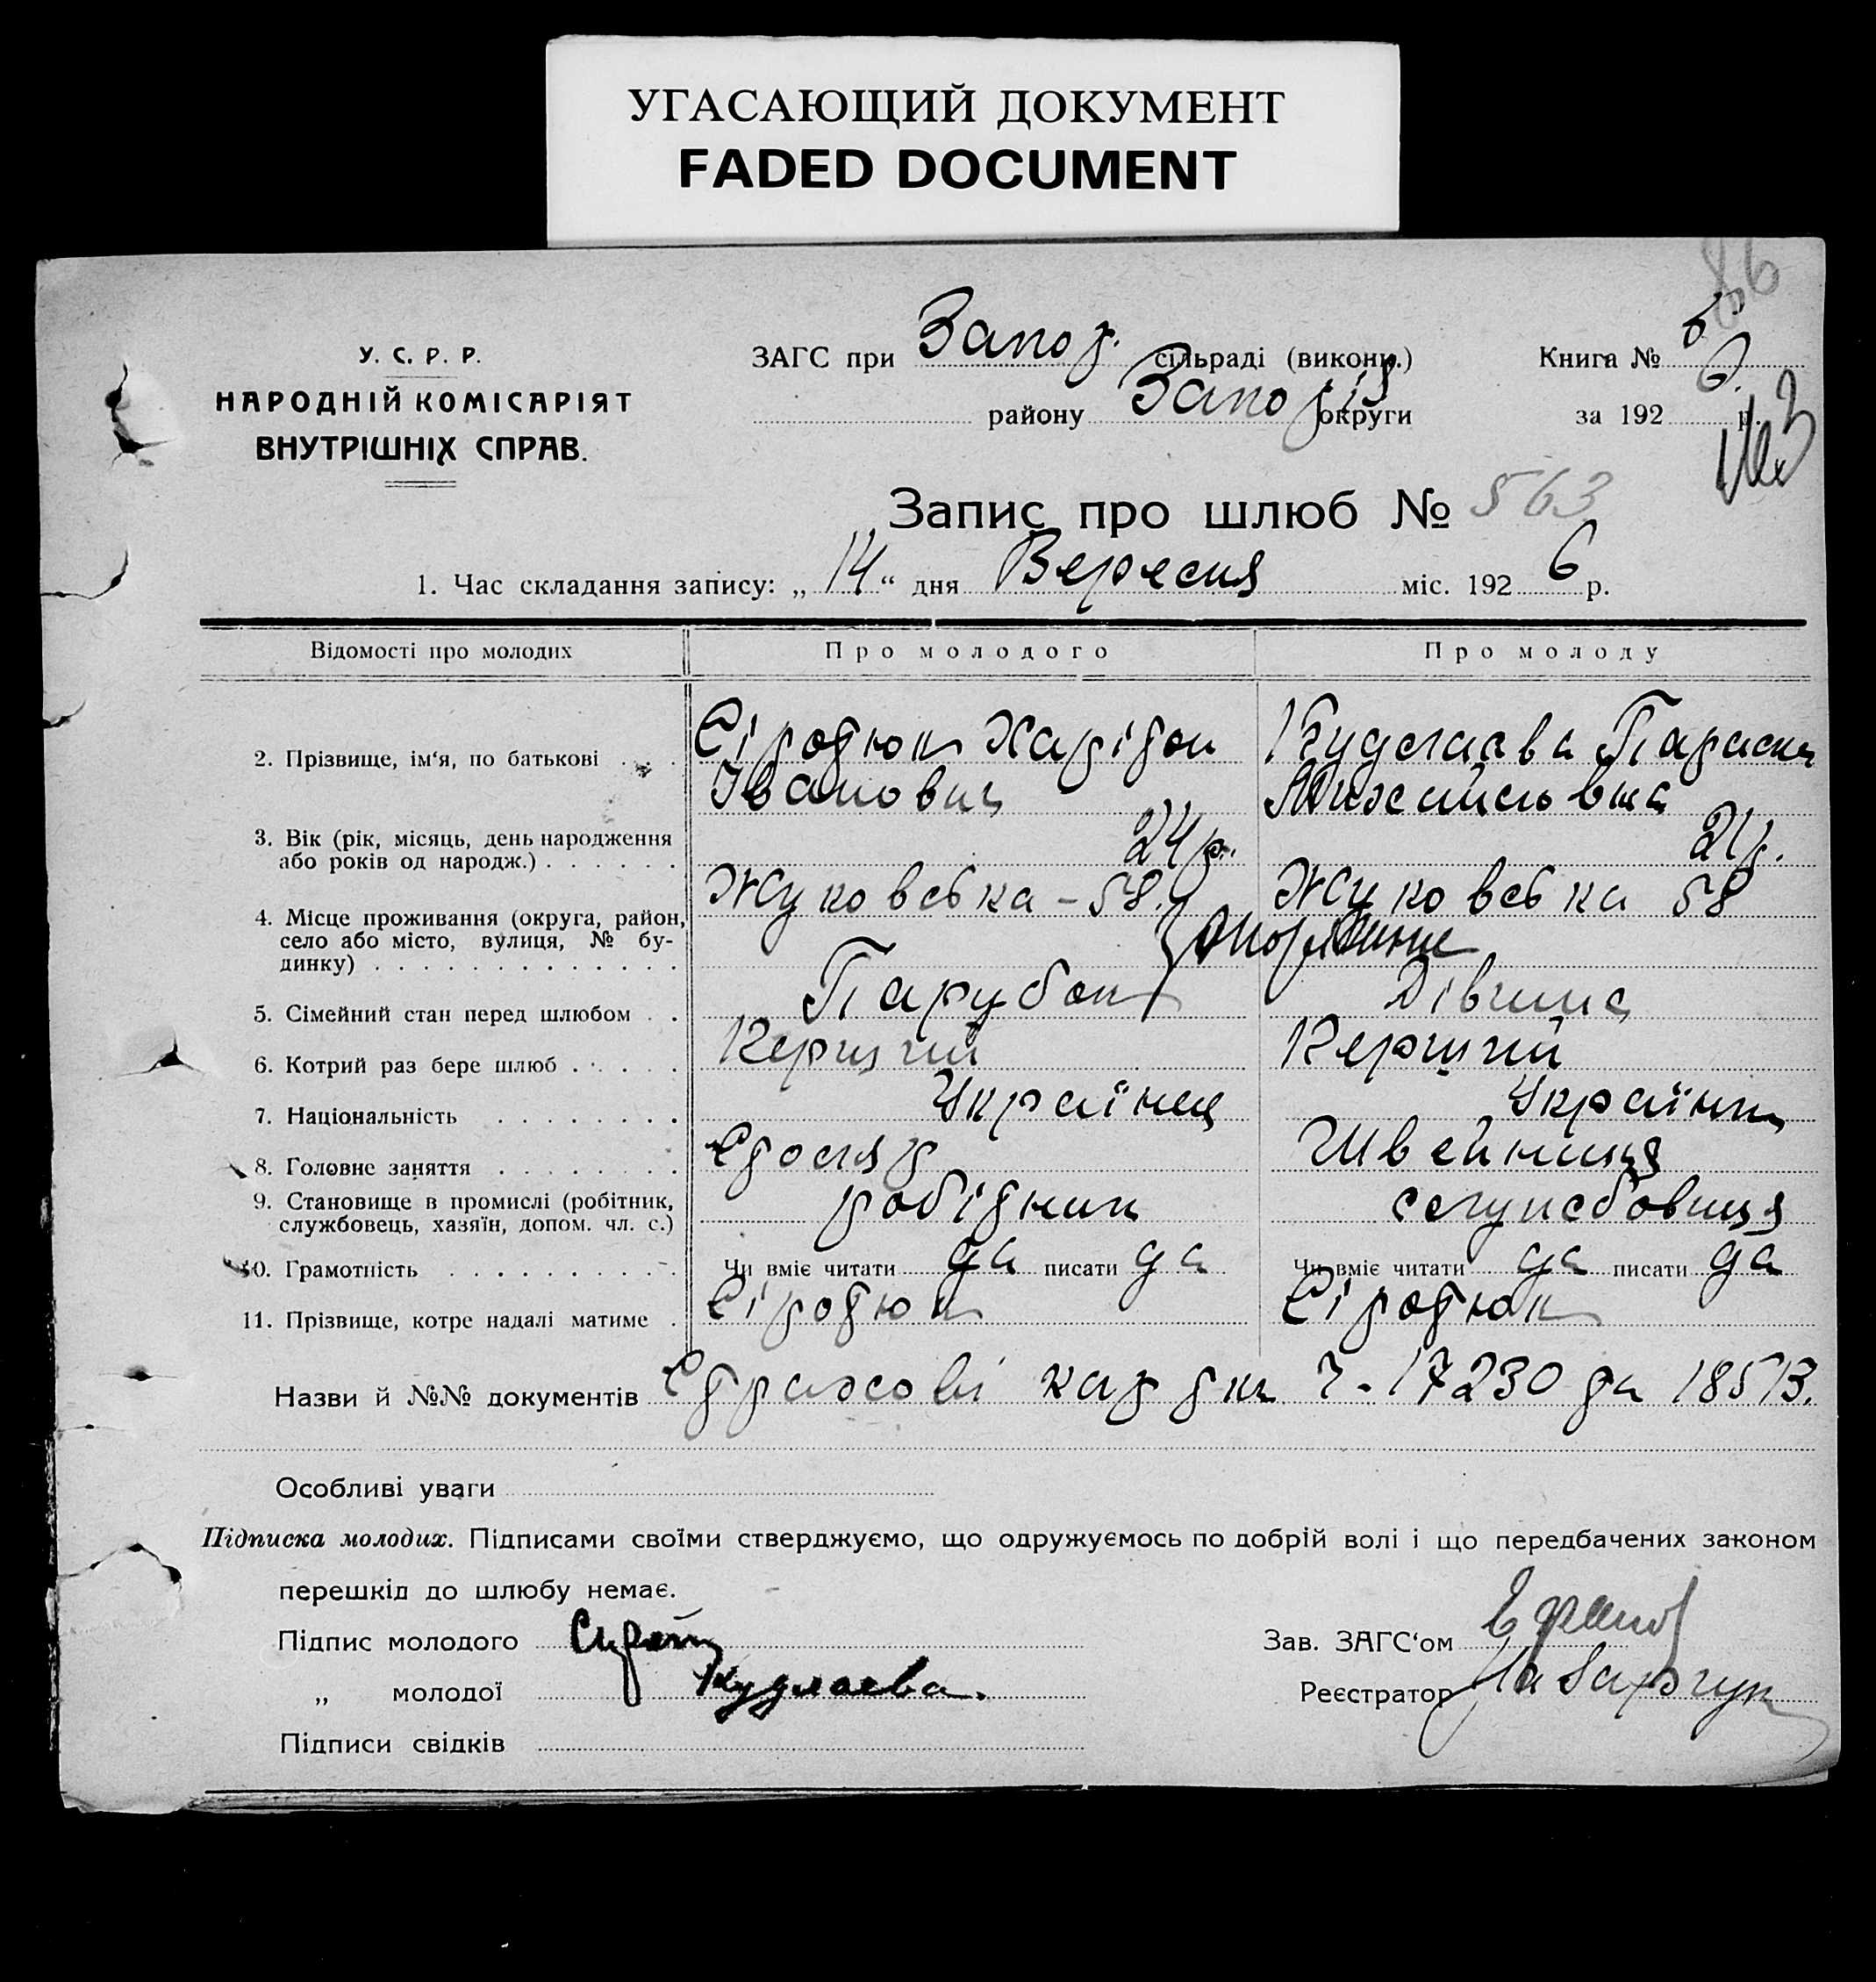 УГАСАЮЩИЙ ДОКУМЕНТ
FADED DOCUMENT
86
У. С. Р. Р.
НАРОДНІЙ КОМІСАРІЯТ
ВНУТРІШНІХ СПРАВ.
ЗАГС при Запор. сільраді (викони.) Книга № 5
району Запоріз округи за 192 6 р.
Запис про шлюб № 563
1. Час складання запису: „ 14 “ дня Вересня міс. 192 6 р.
Відомості про молодих Про молодого Про молоду
2. Прізвище, ім‘я, по батькові Сіротюк Харітон Кудлаєва Параска
Іванович Михайловна
3. Вік (рік, місяць, день народження
або років од народж.) 24 р. 21 р.
4. Місце проживання (округа, район, Жуковська - 58. Жуковська 58
село або місто, вулиця, № бу-
динку) Запоріжжя
5. Сімейний стан перед шлюбом Парубок Дівчина
6. Котрий раз бере шлюб Перший Перший
7. Національність Українец Українка
8. Головне заняття Столяр Швейниця
9. Становище в промислі (робітник,
службовець, хазяїн, допом. чл. с.) робітник служебовиця
10. Грамотність Чи вміє читати да писати да Чи вміє читати да писати да
11. Прізвище, котре надалі матиме Сіротюк Сіротюк
Назви й №№ документів Страхові картки ч. 17230 та 18513.
Особливі уваги
Підписка молодих. Підписами своїми стверджуємо, що одружуємось по добрій волі і що передбачених законом
перешкід до шлюбу немає.
Підпис молодого Сирот Зав. ЗАГС‘ом
„ молодої Кудлаева. Реєстратор Назарчук
Підписи свідків